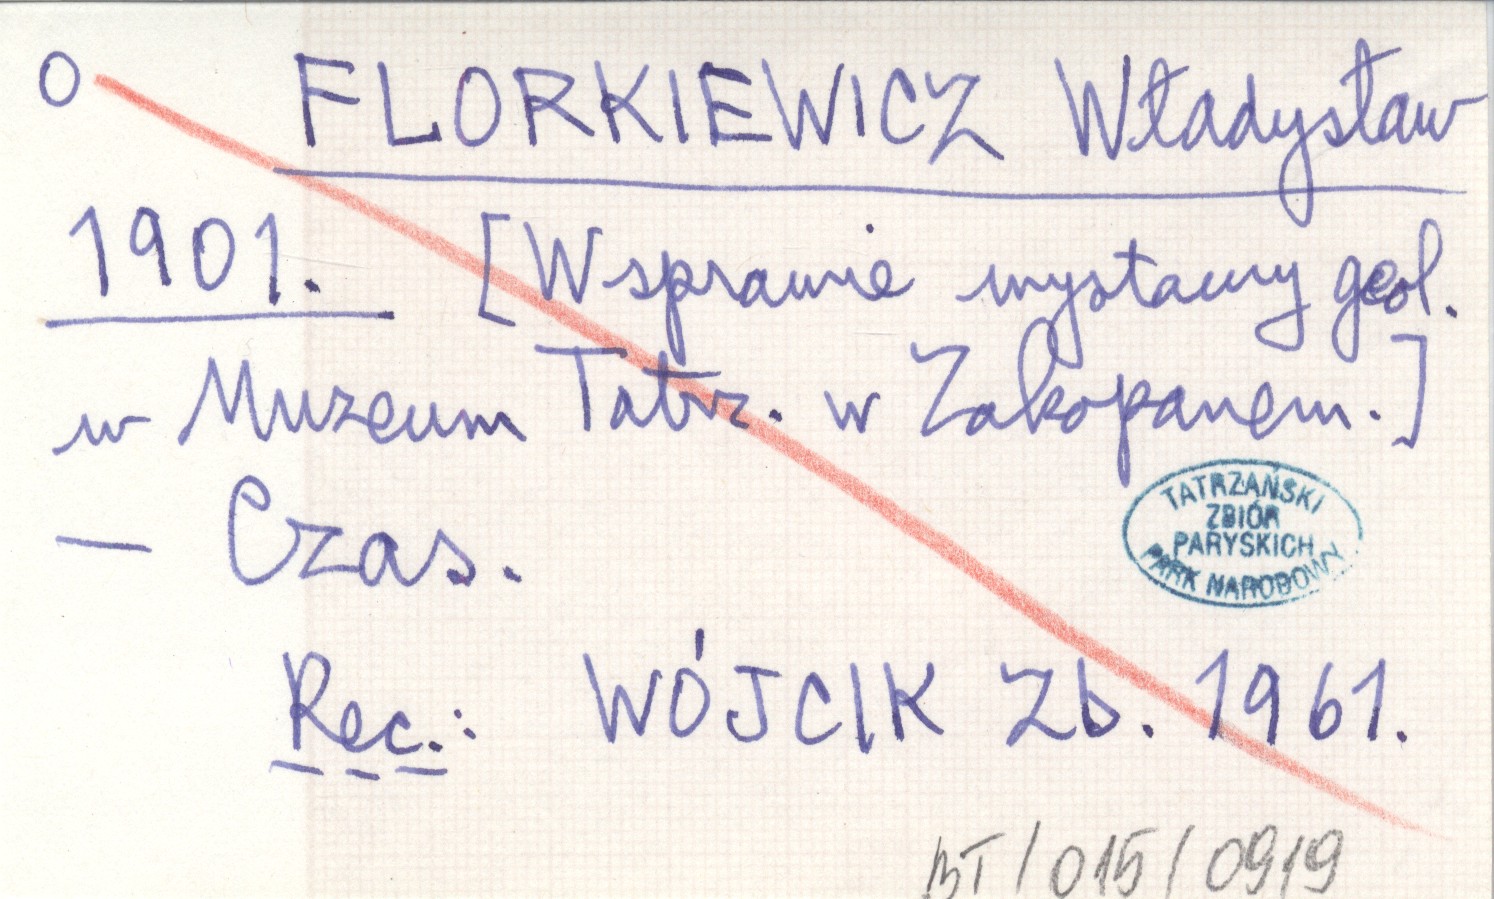 O FLORKIEWICZ Władysław
1901. [W sprawie wystawy geol.
w Muzeum Tatrz. w Zakopanem.]
— Czas.
TATRZAŃSKI
ZBIÓR
PARYSKICH
PARK NARODOWY
Rec.: WÓJCIK Zb. 1961.
BT/015/0919